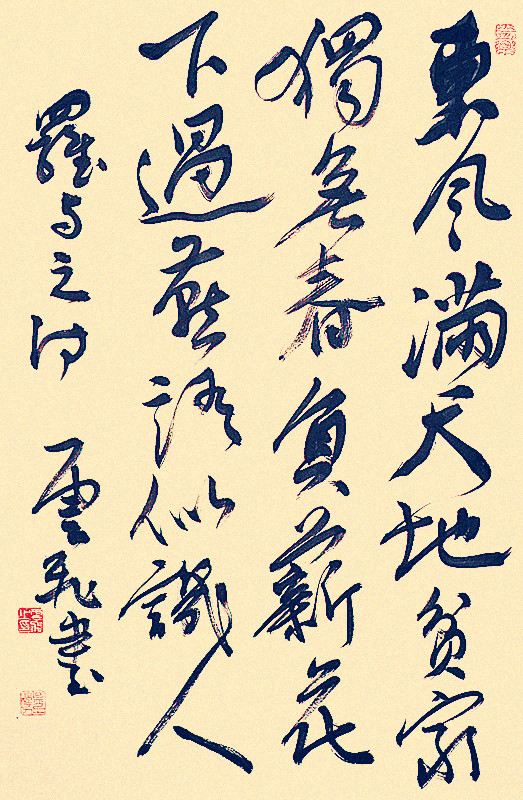 東風滿天地貧家
獨無春負薪花
下過燕語似譏人
羅与之詩 雲飛書